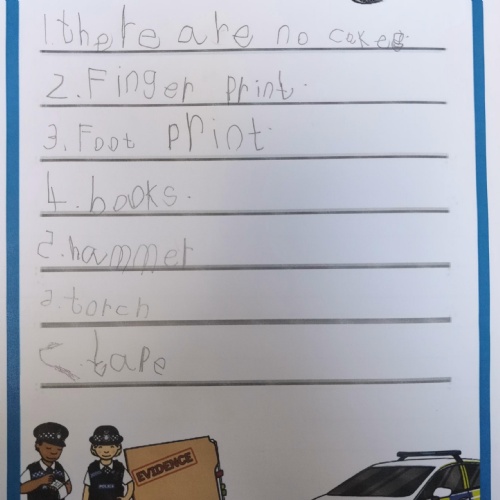 1 there are no cakes.
2. Finger print.
3. Foot print.
4. books.
2. hammer
2. torch
tape
POLICE
EVIDENCE